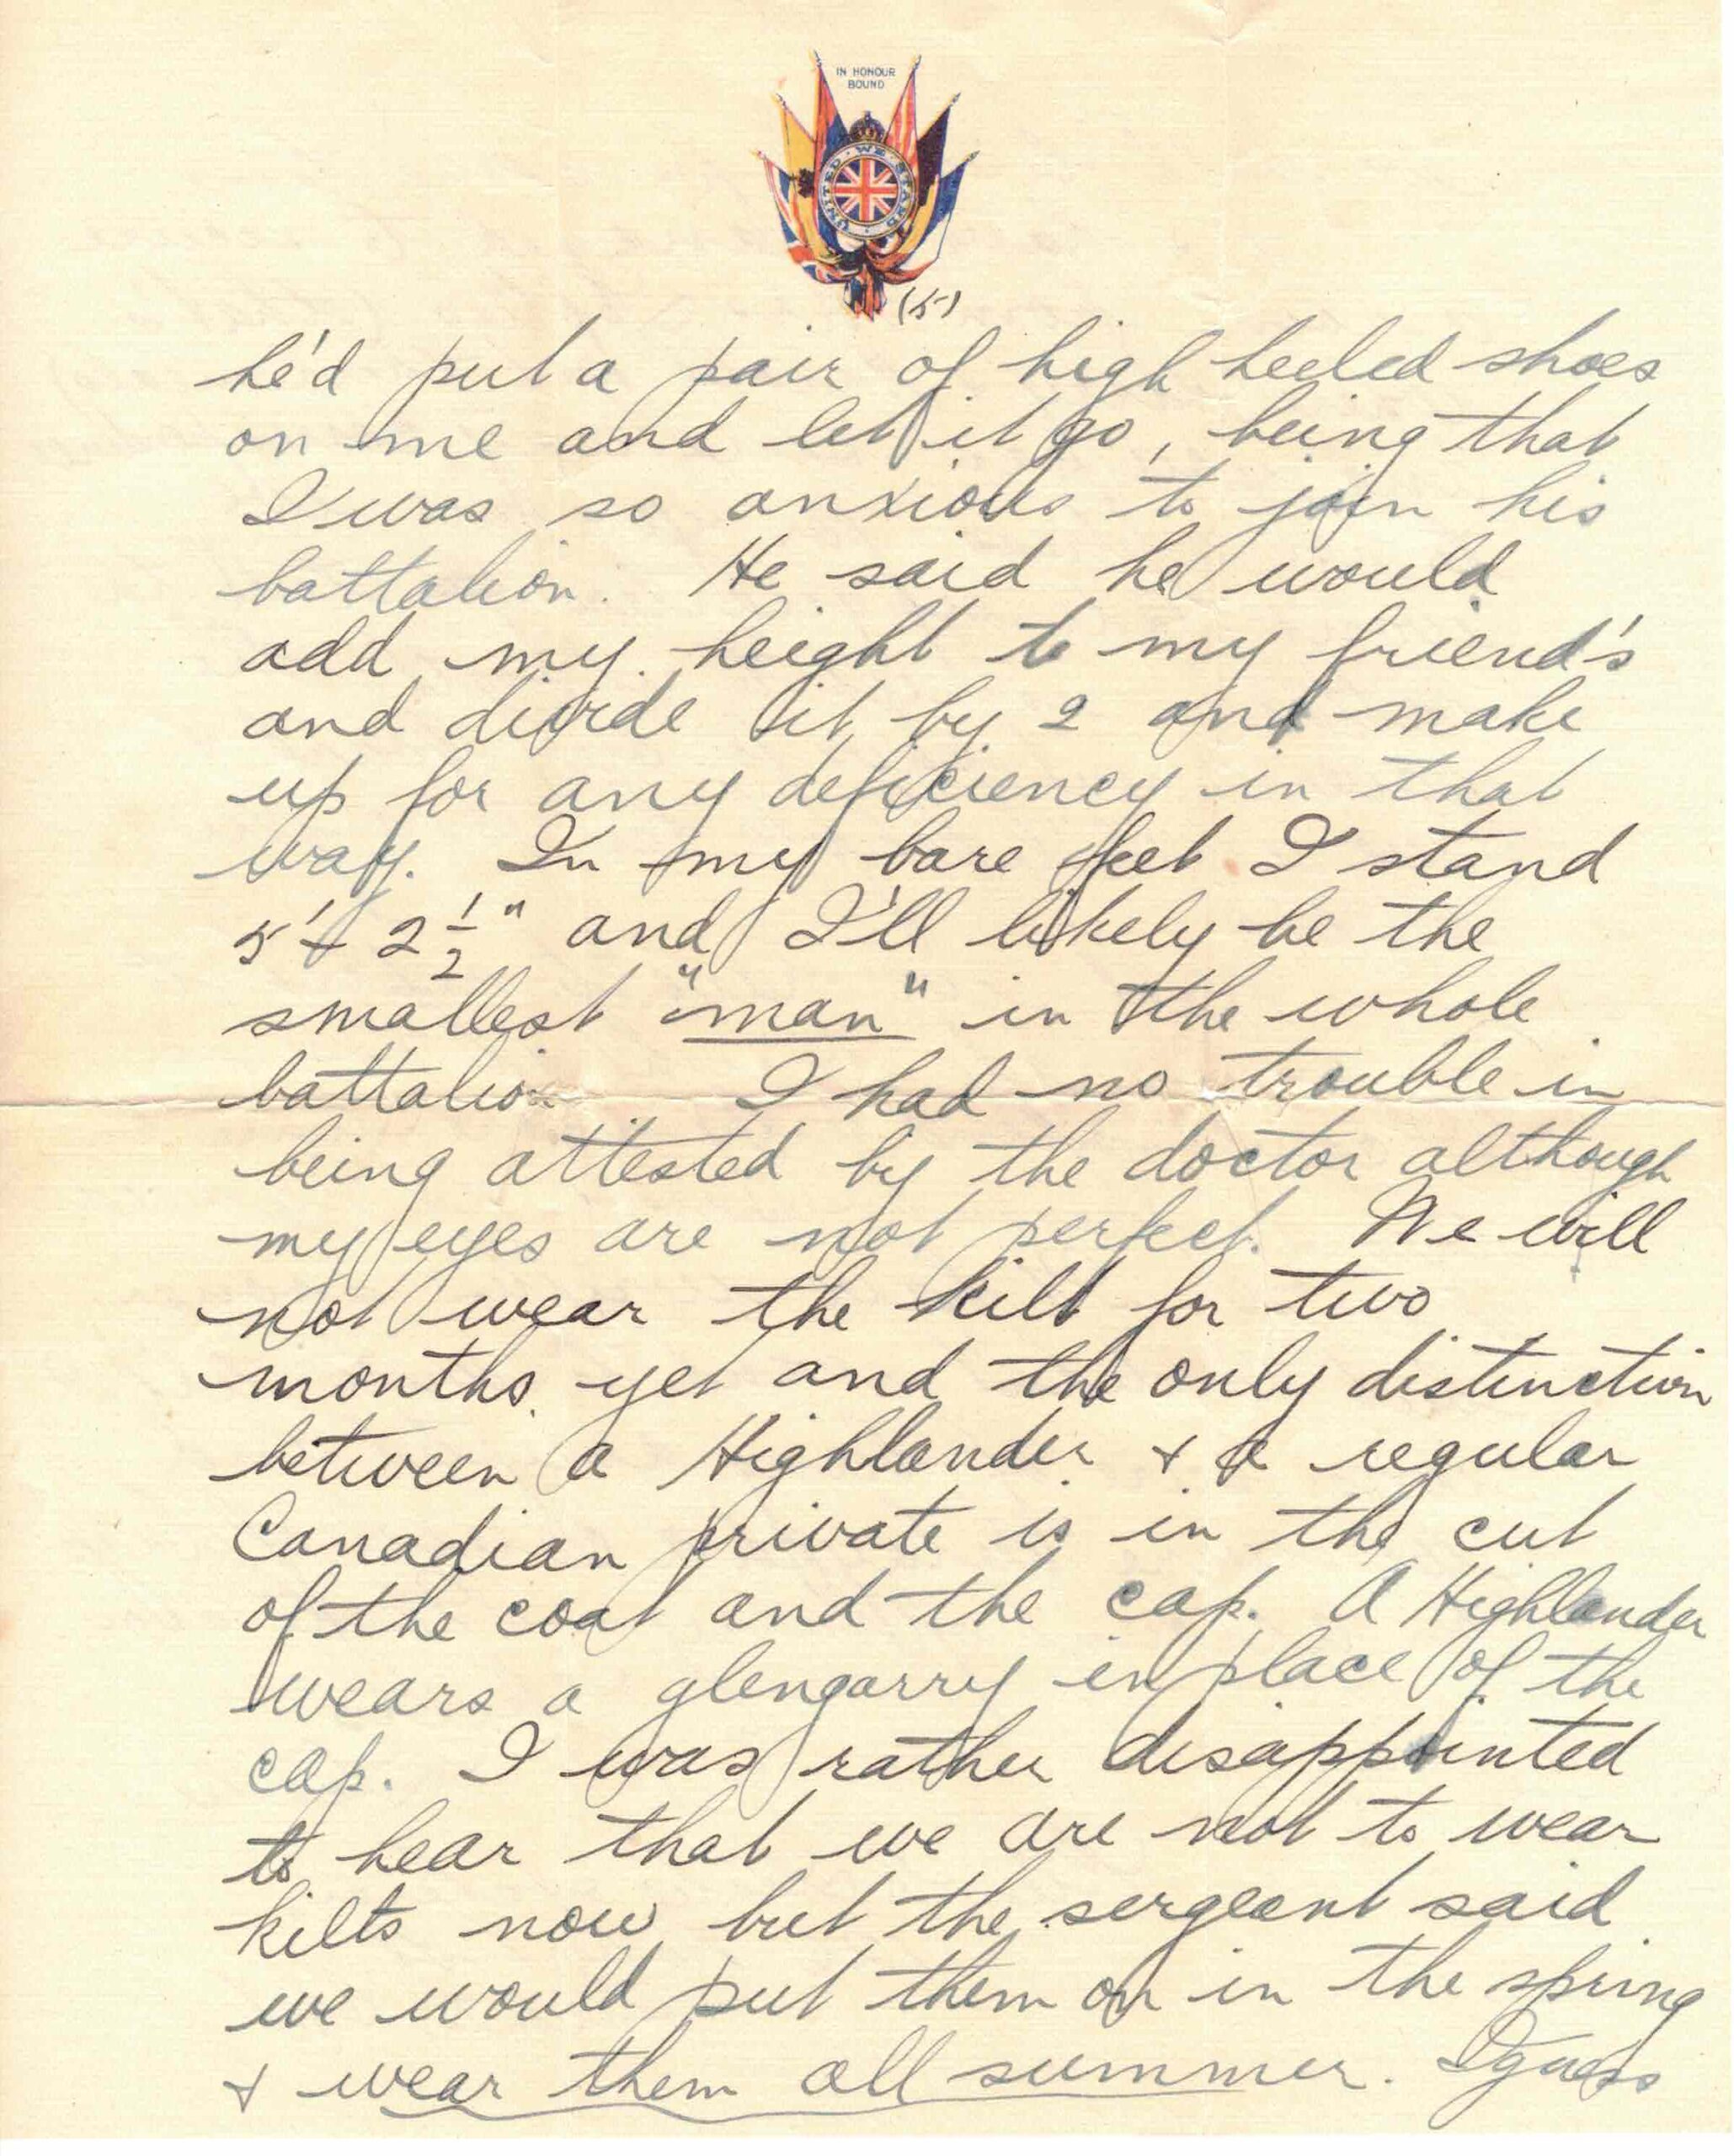 IN HONOUR
BOUND
UNITED · WE · STAND
(5)
he'd put a pair of high heeled shoes
on me and let it go, being that
I was so anxious to join his
battalion. He said he would
add my height to my friend's
and divide it by 2 and make
up for any deficiency in that
way. In my bare feet I stand
5' + 2 1/2" and I'll likely be the
smallest "man" in the whole
battalion I had no trouble in
being attested by the doctor although
my eyes are not perfect. We will
not wear the kilt for two
months yet and the only distinction
between a Highlander & a regular
Canadian private is in the cut
of the coat and the cap. A Highlander
wears a glengarry in place of the
cap. I was rather disappointed
to hear that we are not to wear
kilts now but the sergeant said
we would put them on in the spring
& wear them all summer. I guess